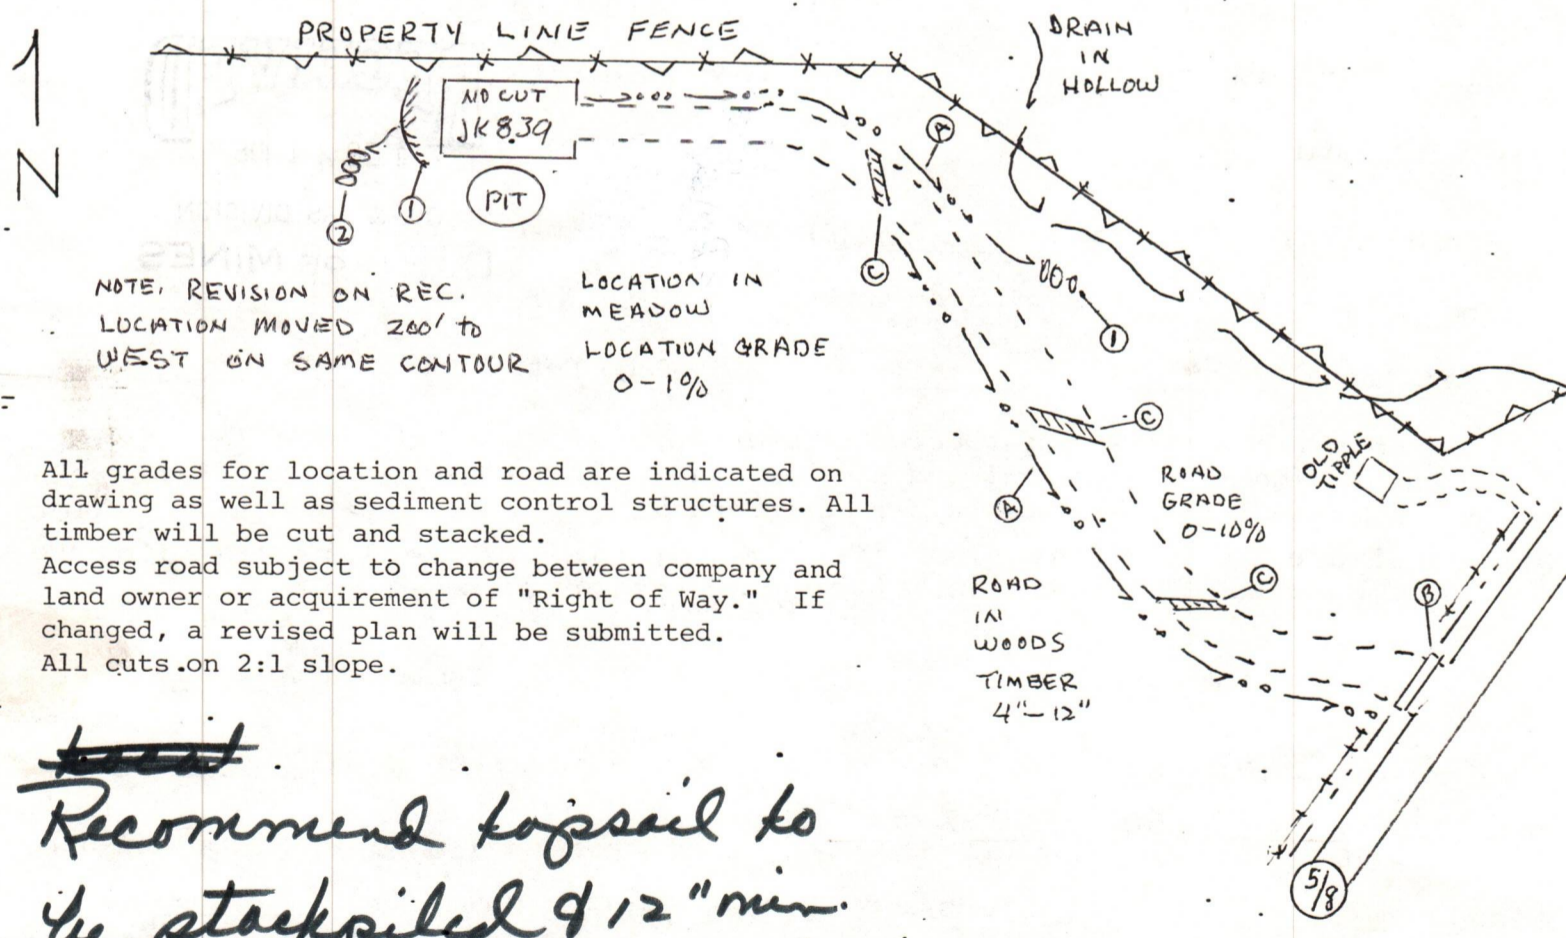 PROPERTY LINE FENCE
DRAIN
IN
HOLLOW
N
NO CUT
JK 839
PIT
1
2
A
C
1
NOTE, REVISION ON REC.
LOCATION MOVED 200' to
WEST ON SAME CONTOUR
LOCATION IN
MEADOW
LOCATION GRADE
0-1%
C
A
OLD
TIPPLE
ROAD
GRADE
0-10%
All grades for location and road are indicated on
drawing as well as sediment control structures. All
timber will be cut and stacked.
Access road subject to change between company and
land owner or acquirement of "Right of Way." If
changed, a revised plan will be submitted.
All cuts on 2:1 slope.
ROAD
IN
WOODS
TIMBER
4"-12"
C
B
5/8
Recommend topsoil to
be stockpiled & 12" min.